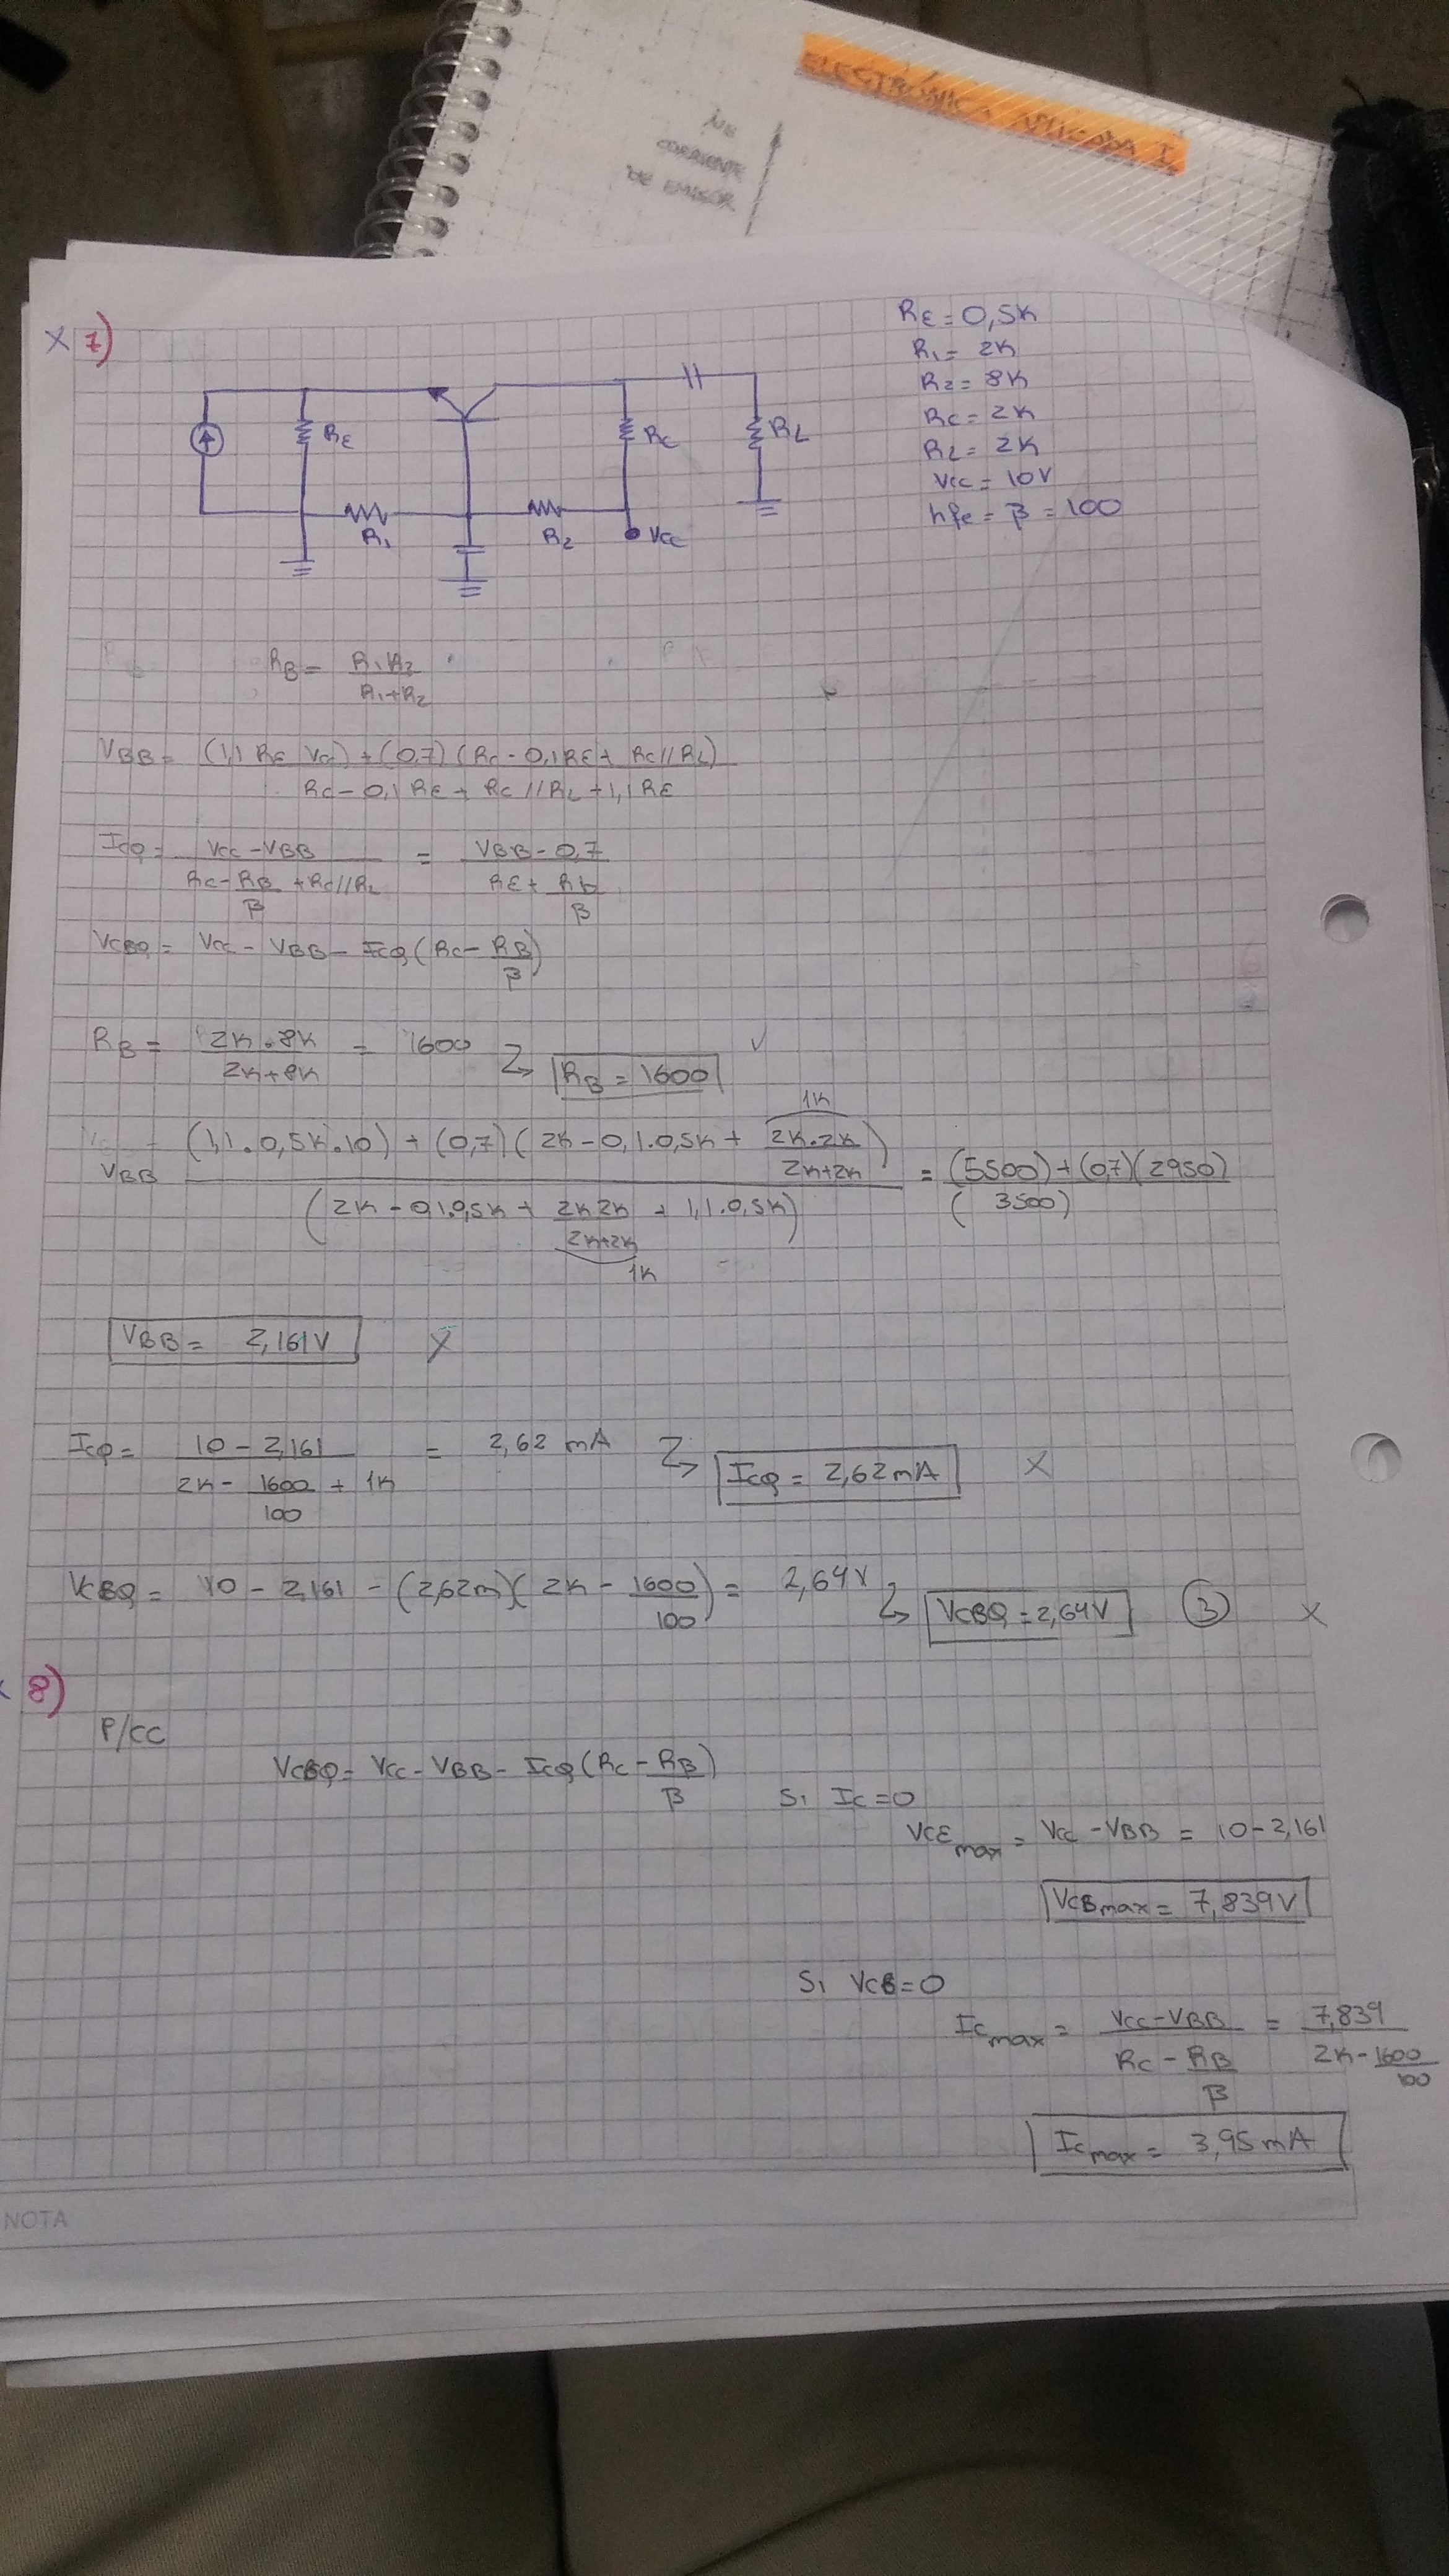 ELECTRÓNICA APLICADA I
CORRIENTE
DE EMISOR
X 7)
RE = 0,5K
R1 = 2K
R2 = 8K
RC = 2K
RL = 2K
VCC = 10V
hfe = β = 100
RE
RC
RL
R1
R2
VCC
RB = R1 R2 / R1+R2
VBB = (1,1 RE VCC) + (0,7) (RC - 0,1RE + RC//RL) / RC - 0,1 RE + RC//RL + 1,1 RE
ICQ = VCC - VBB / RC - RB/β + RC//RL = VBB - 0,7 / RE + Rb/β
VCBQ = VCC - VBB - ICQ (RC - RB/β)
RB = 2K.8K / 2K+8K = 1600 RB = 1600 ✓
VBB = (1,1.0,5K.10) + (0,7) (2K - 0,1.0,5K + 2K.2K / 2K+2K) 1K / (2K - 0,1.0,5K + 2K2K / 2K+2K + 1,1.0,5K) 1K = (5500) + (0,7)(2950) / (3500)
VBB = 2,161V X
ICQ = 10 - 2,161 / 2K - 1600/100 + 1K = 2,62 mA ICQ = 2,62mA X
VCBQ = 10 - 2,161 - (2,62m)(2K - 1600/100) = 2,64V VCBQ = 2,64V 3 X
8)
P/CC
VCBQ = VCC - VBB - ICQ (RC - RB/β)
Si IC = 0
VCEmax = VCC - VBB = 10 - 2,161
VCBmax = 7,839V
Si VCB = 0
ICmax = VCC - VBB / RC - RB/β = 7,839 / 2K - 1600/100
ICmax = 3,95mA
NOTA